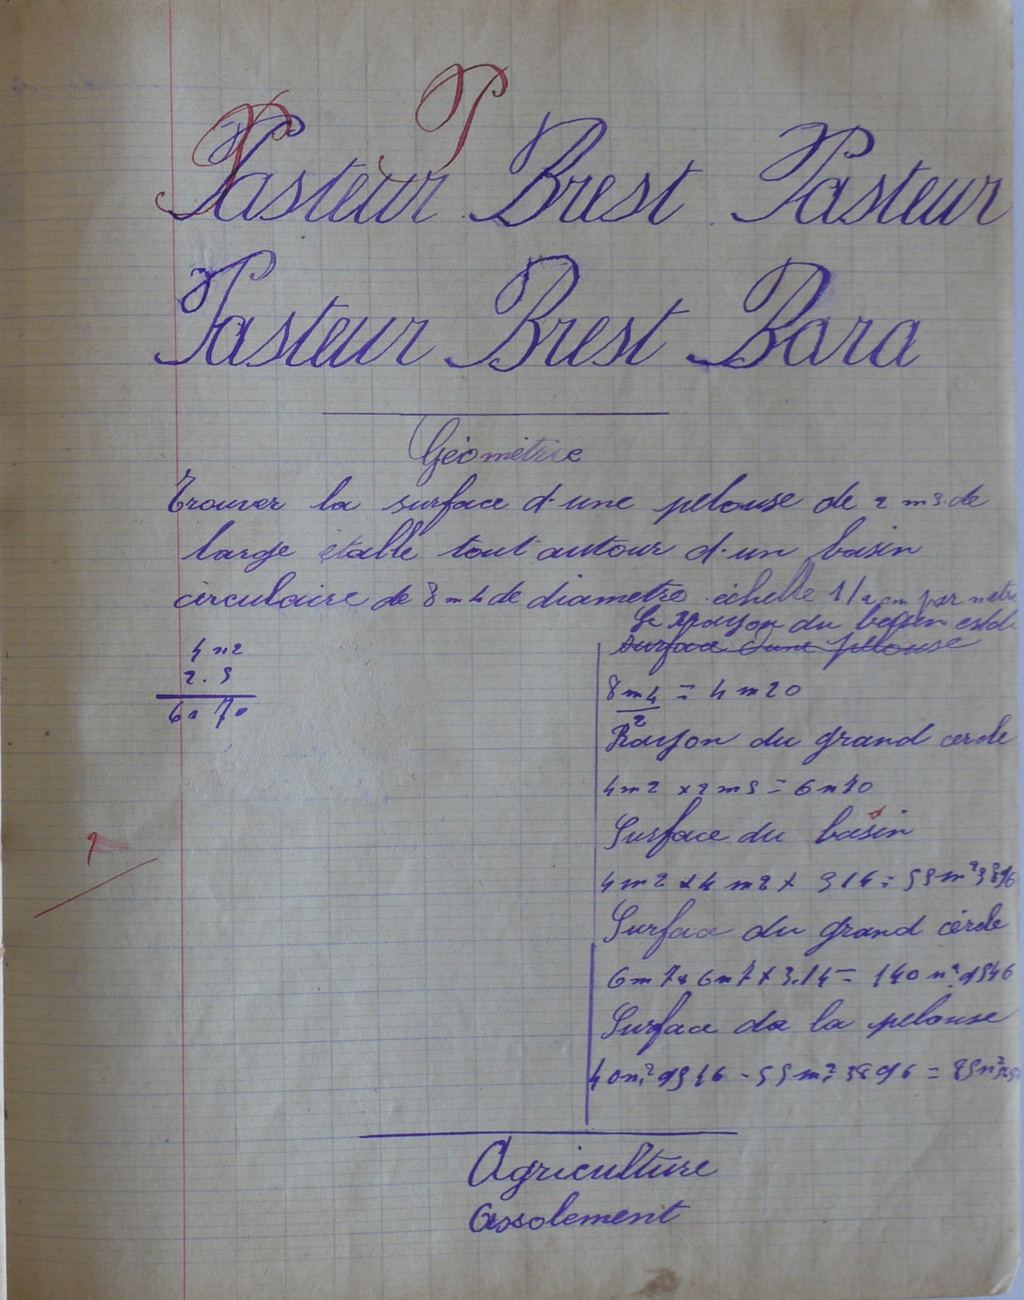 P
Pasteur Brest Pasteur
Pasteur Brest Bara
Géométrie
Trouver la surface d'une pelouse de 2 m 5 de
large établie tout autour d'un basin
circulaire de 8 m 4 de diametre échelle 1/2 cm par metre
Le Rayon du bassin est de
surface d'une pelouse
4 m 2
2.5
6 m 70
8m4/2 = 4 m 20
Rayon du grand cercle
4m2 x 2m5 = 6m70
Surface du basin
4m2 x 4m2 x 314 = 55m²3896
Surface du grand cercle
6m7 x 6m7 x 3.14 = 140m²9546
Surface da la pelouse
40m²9546 - 55m²3896 =
Agriculture
Assolement